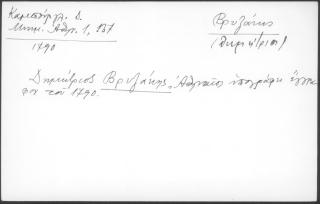 Καμπούρογλ. Δ.
Μνημ. Αθην. 1, 137
1790
Βρυζάκης
(Δημήτριος)
Δημήτριος Βρυζάκης, Αθηναίος υπογράφει έγγρα-
φον του 1790.